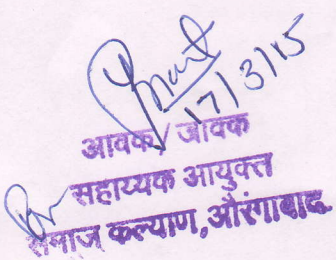 17/3/15
आवक/जावक
सहाय्यक आयुक्त
समाज कल्याण, औरंगाबाद.